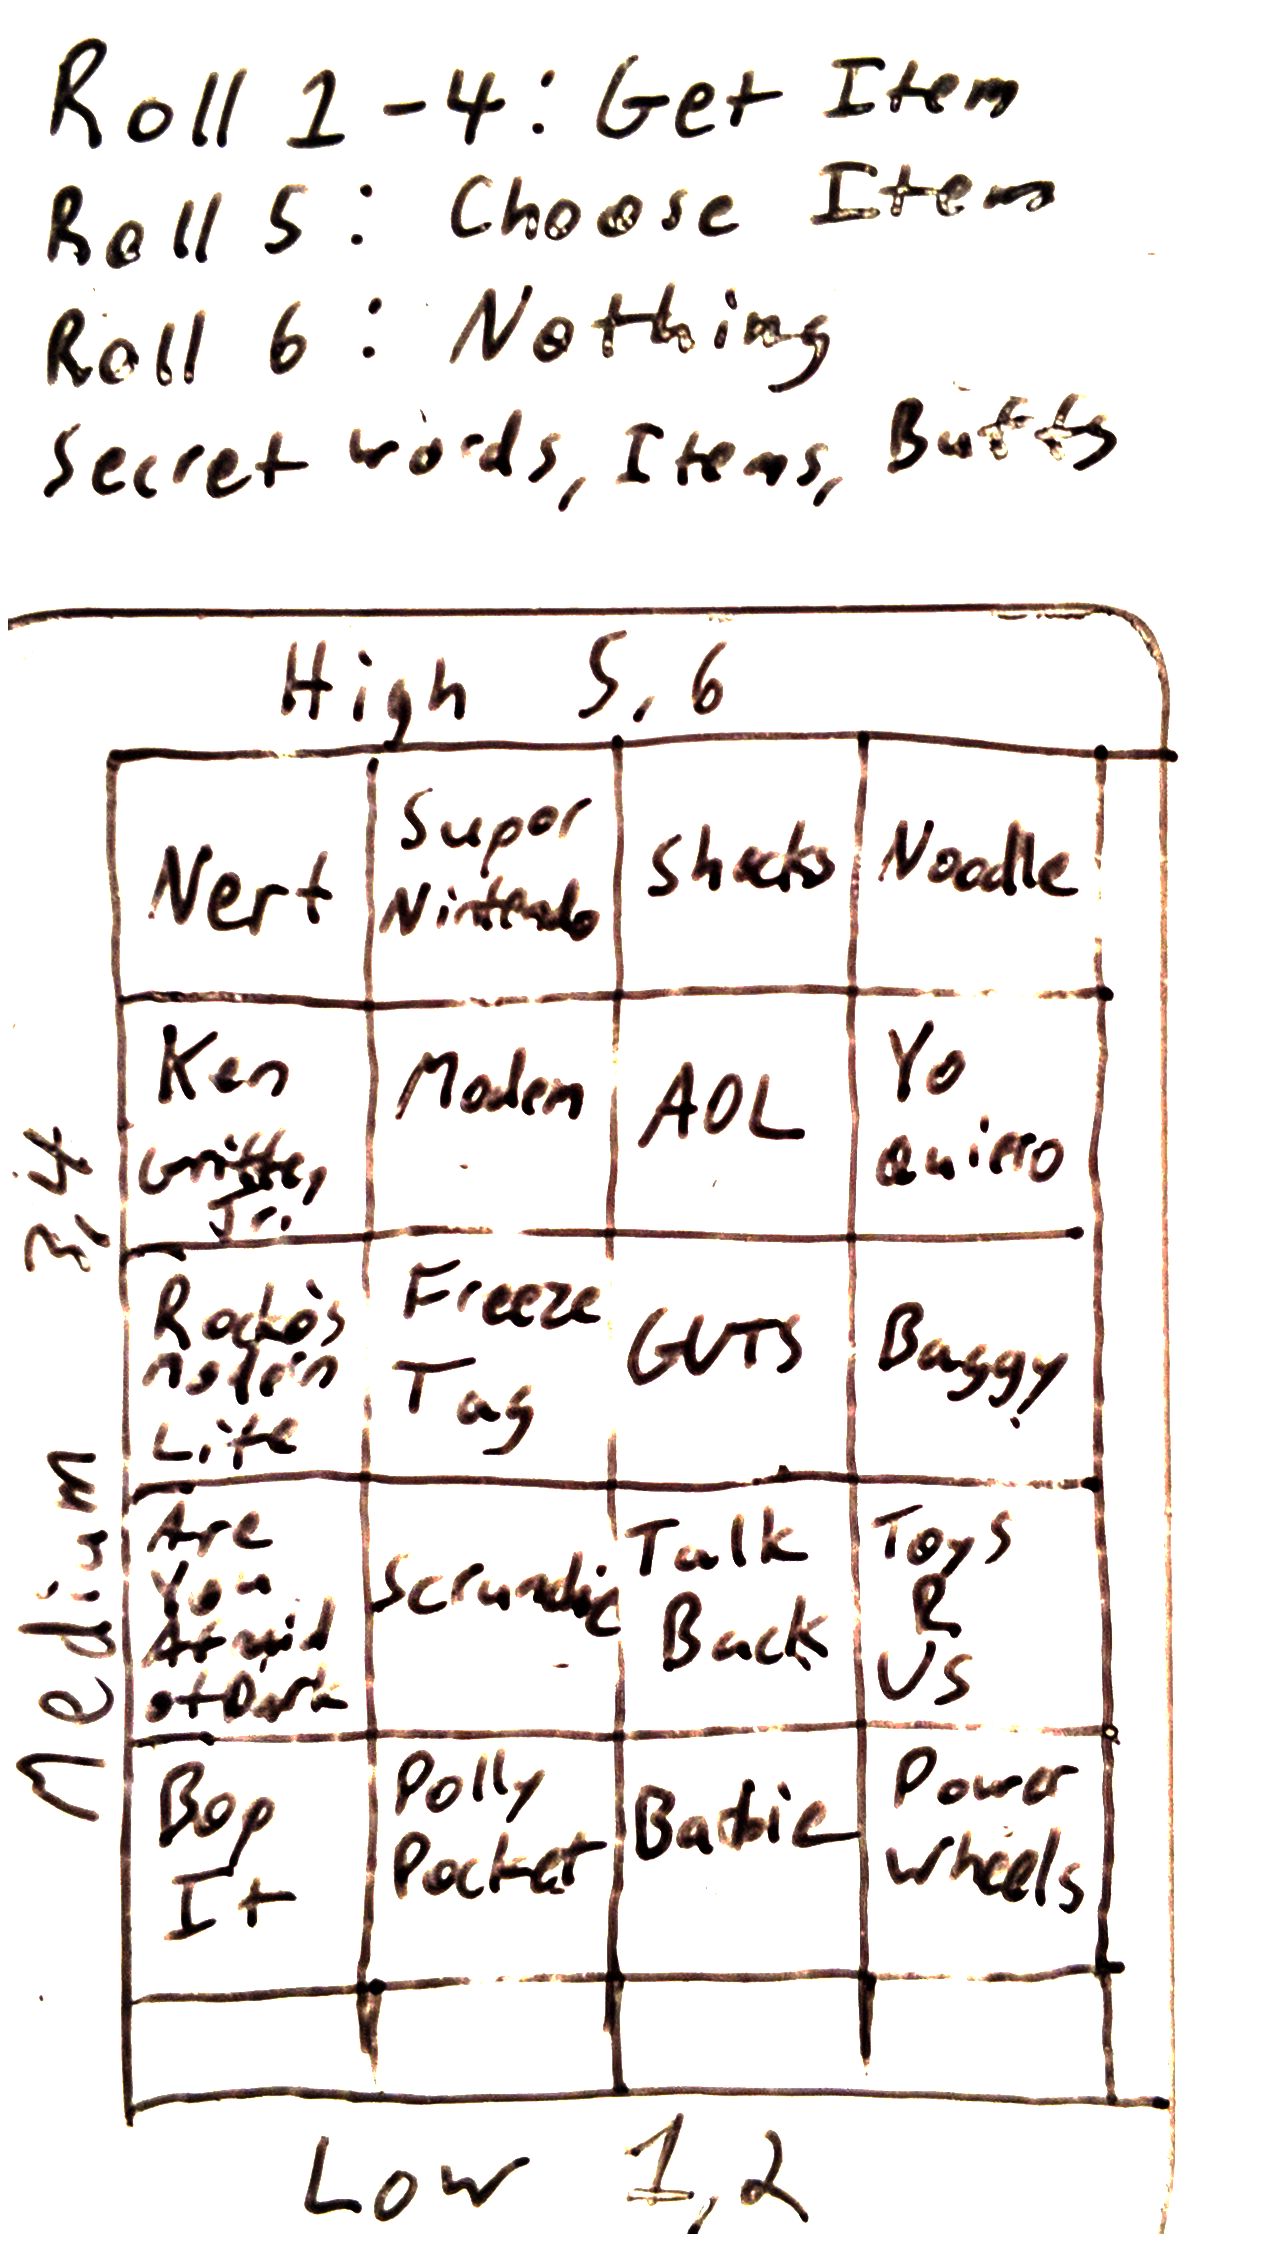 Roll 1-4: Get Item
Roll 5: Choose Item
Roll 6: Nothing
Secret words, Items, Butts
High 5,6
Nerf
Super
Nintendo
Noodle
Ken
Griffey
Jr.
Modem
AOL
Yo
Quiero
Rocko's
Modern
Life
Freeze
Tag
GUTS
Baggy
Are
You
Afraid
of Dark
Scrunchie
Talk
Back
Toys
R
US
Bop
It
Polly
Pocket
Barbie
Power
Wheels
Medium 3,4
Low 1,2